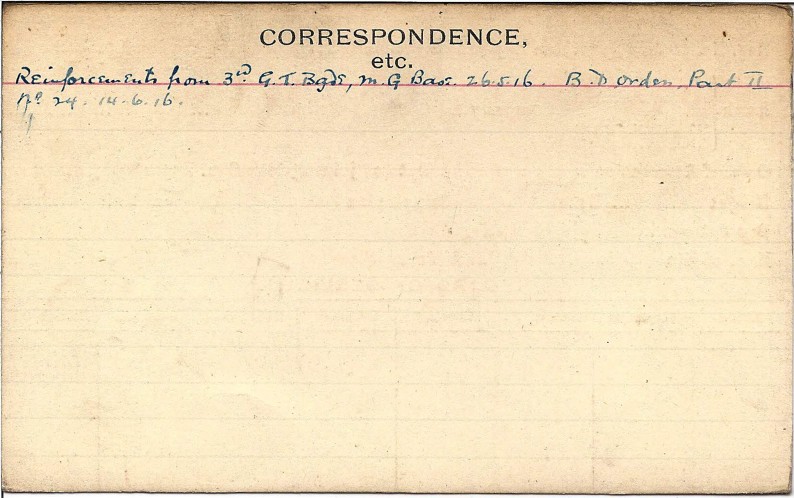 CORRESPONDENCE,
etc.
Reinforcements from 3rd G. T. Bgde, M. G Base. 26.5.16. B. D Orders, Part II
No 24. 14.6.16.